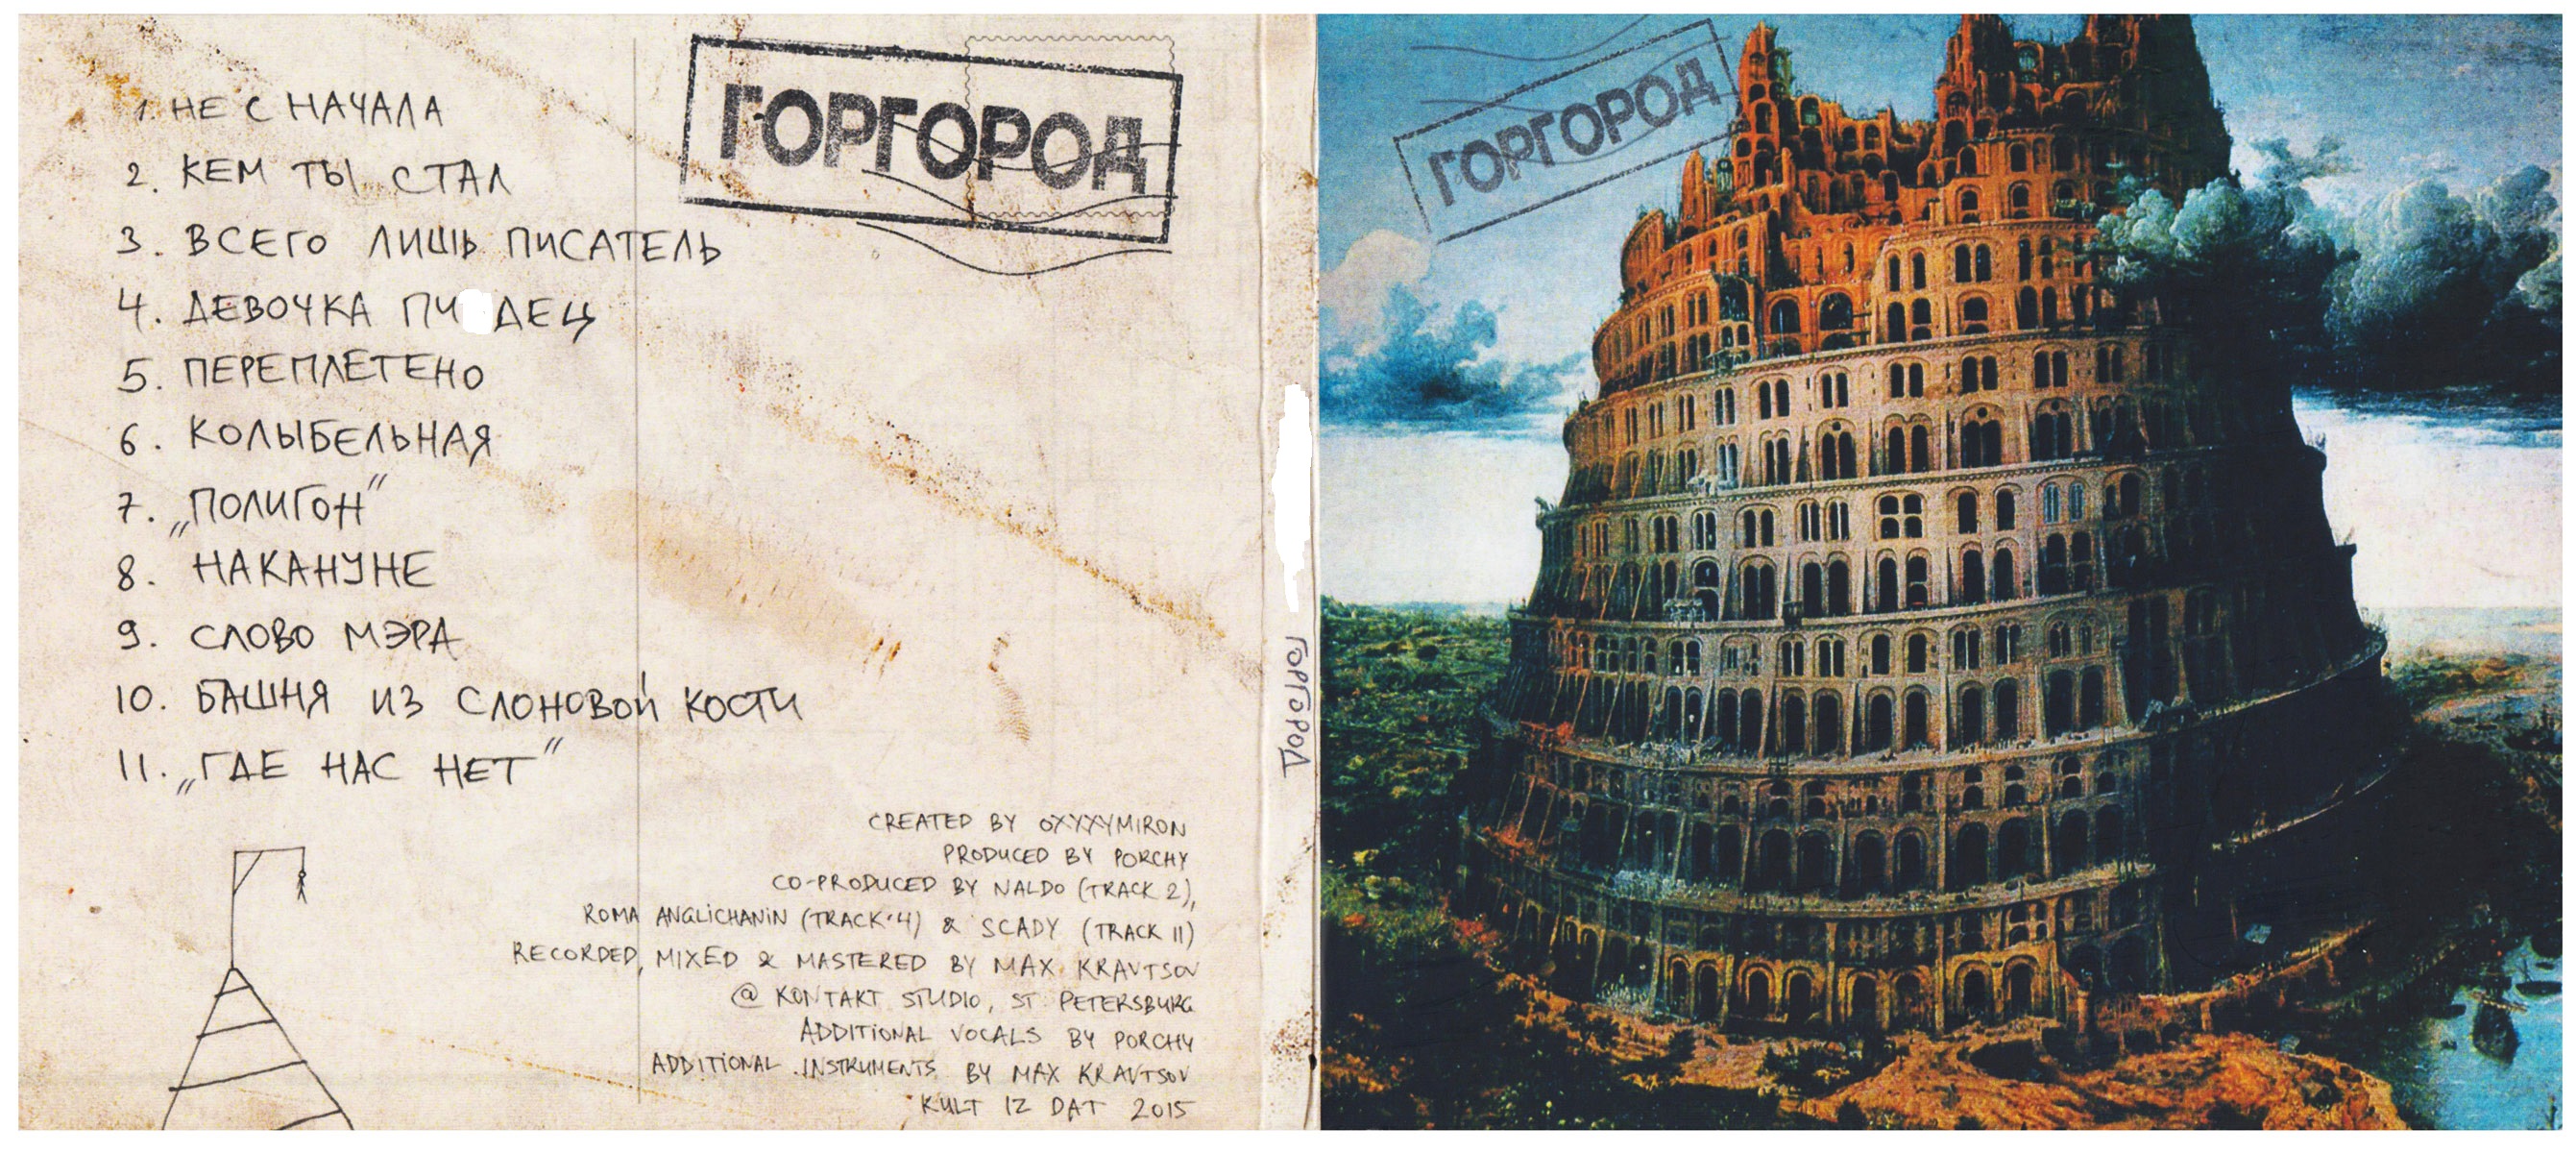 1. НЕ С НАЧАЛА
2. КЕМ ТЫ СТАЛ
3. ВСЕГО ЛИШЬ ПИСАТЕЛЬ
4. ДЕВОЧКА ПИ ДЕЦ
5. ПЕРЕПЛЕТЕНО
6. КОЛЫБЕЛЬНАЯ
7. „ПОЛИГОН"
8. НАКАНУНЕ
9. СЛОВО МЭРА
10. БАШНЯ ИЗ СЛОНОВОЙ КОСТИ
11. „ГДЕ НАС НЕТ"
ГОРГОРОД
CREATED BY OXXXYMIRON
PRODUCED BY PORCHY
CO-PRODUCED BY NALDO (TRACK 2),
ROMA ANGLICHANIN (TRACK 4) & SCADY (TRACK 11)
RECORDED, MIXED & MASTERED BY MAX KRAVTSOV
@ KONTAKT STUDIO, ST PETERSBURG
ADDITIONAL VOCALS BY PORCHY
ADDITIONAL INSTRUMENTS BY MAX KRAVTSOV
KULT IZ DAT 2015
ГОРГОРОД
ГОРГОРОД